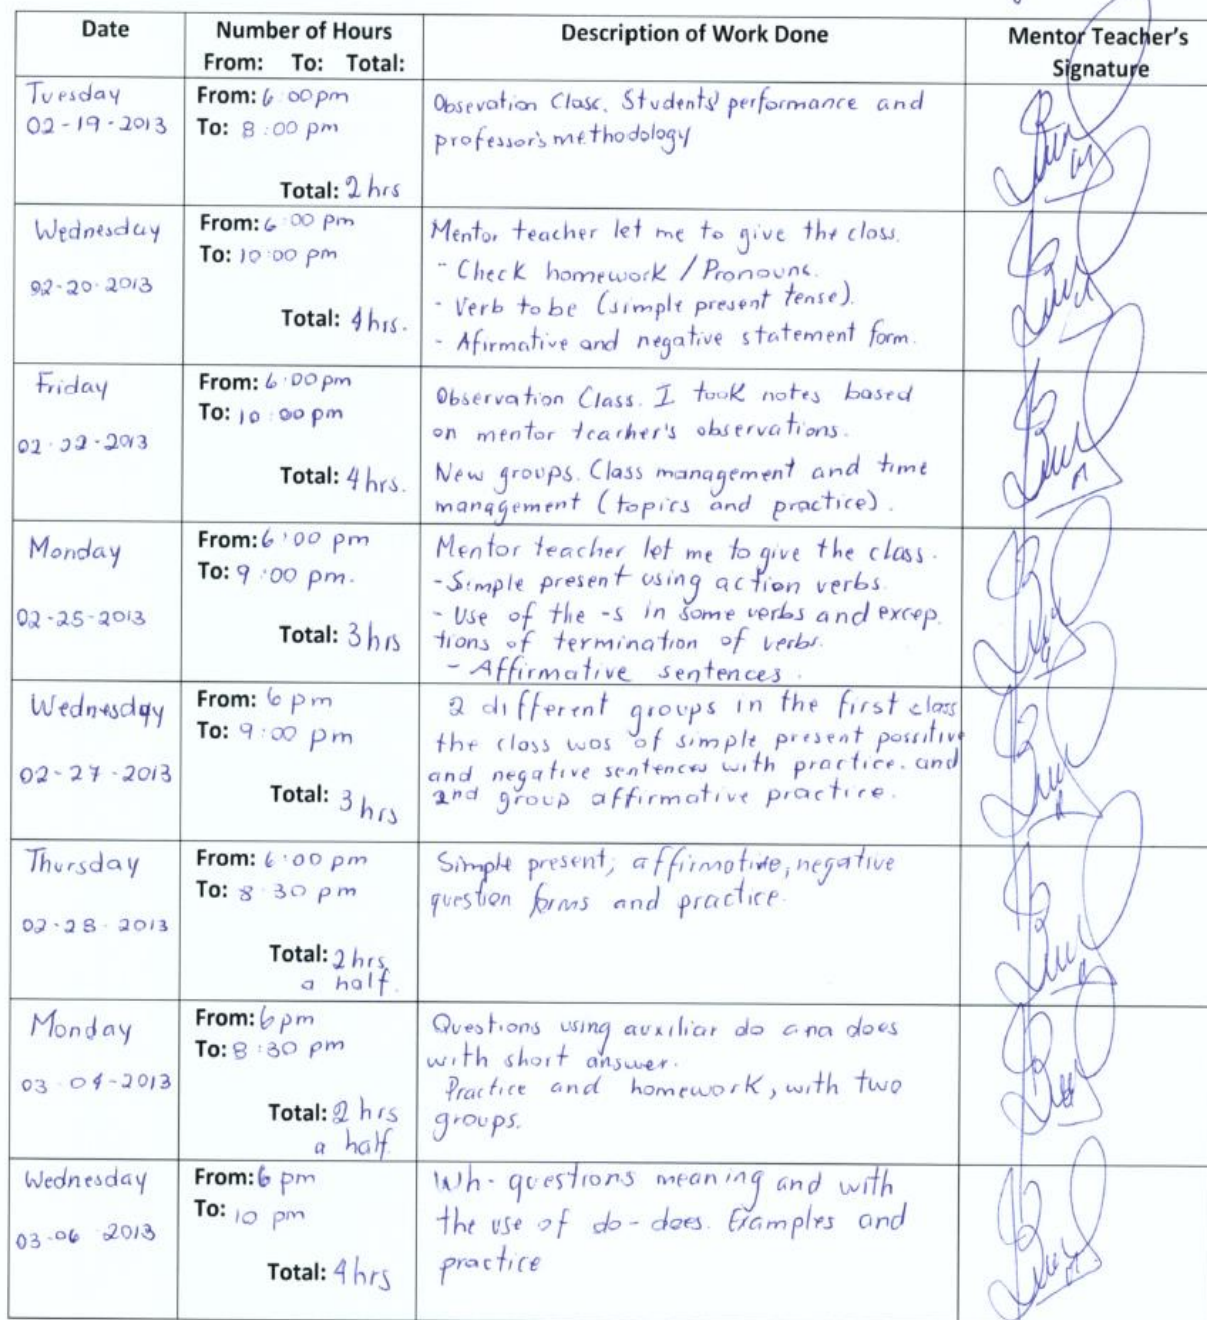 Date Number of Hours Description of Work Done Mentor Teacher's
From: To: Total: Signature
Tuesday
02-19-2013
From: 6:00pm
To: 8:00 pm
Total: 2 hrs
Obsevation Class. Students' performance and
professor's methodology
Wednesday
02-20-2013
From: 6:00 pm
To: 10:00 pm
Total: 4hrs.
Mentor teacher let me to give the class.
- Check homework / Pronouns.
- Verb to be (simple present tense).
- Afirmative and negative statement form.
Friday
02-22-2013
From: 6:00pm
To: 10:00 pm
Total: 4 hrs.
Observation Class. I took notes based
on mentor teacher's observations.
New groups. Class management and time
management (topics and practice).
Monday
02-25-2013
From: 6:00 pm
To: 9:00 pm.
Total: 3 hrs
Mentor teacher let me to give the class.
-Simple present using action verbs.
- Use of the -s in some verbs and excep.
tions of termination of verbs.
- Affirmative sentences.
Wednesday
02-27-2013
From: 6 pm
To: 9:00 pm
Total: 3 hrs
2 different groups in the first class
the class was of simple present possitive
and negative sentences with practice. and
2nd group affirmative practice.
Thursday
02-28-2013
From: 6:00 pm
To: 8:30 pm
Total: 2 hrs
a half.
Simple present; affirmative, negative
question forms and practice.
Monday
03-04-2013
From: 6pm
To: 8:30 pm
Total: 2 hrs
a half.
Questions using auxiliar do and does
with short answer.
Practice and homework, with two
groups.
Wednesday
03-06-2013
From: 6 pm
To: 10 pm
Total: 4 hrs
Wh- questions meaning and with
the use of do-does. Examples and
practice